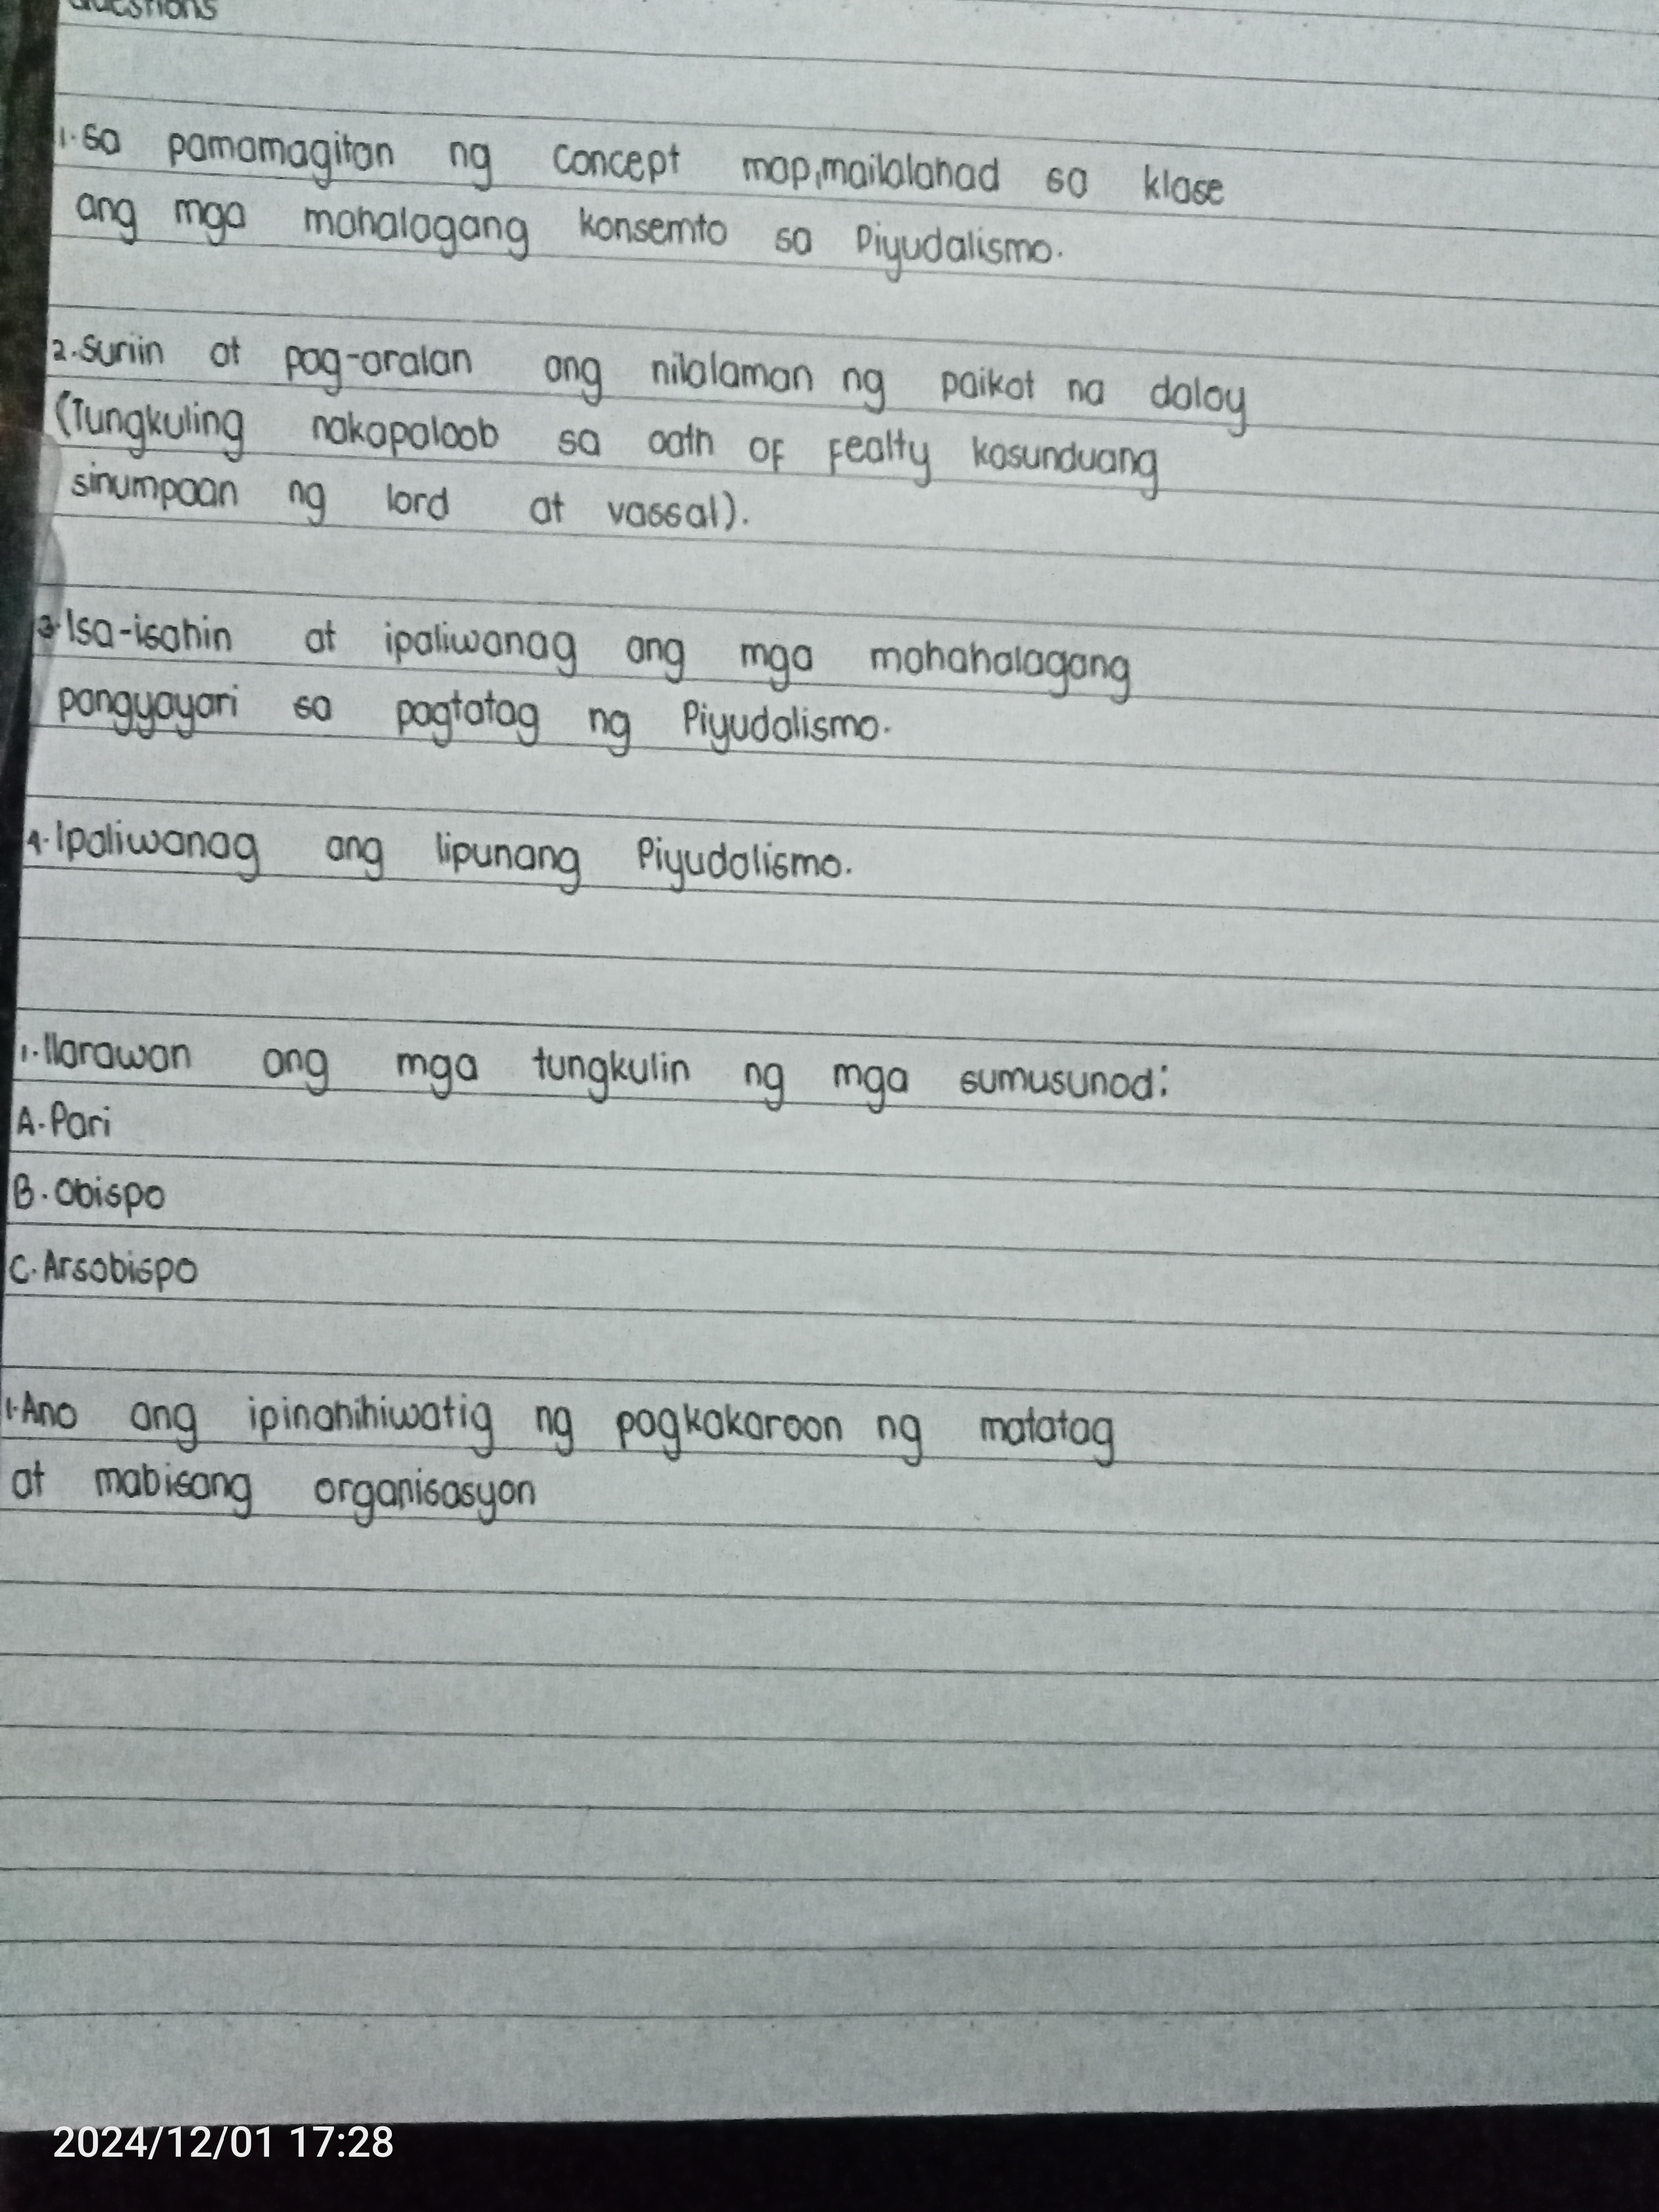 Questions
1. Sa pamamagitan ng concept map, mailalahad sa klase
ang mga mahalagang konsemto sa Piyudalismo.
2. Suriin at pag-aralan ang nilalaman ng paikot na daloy
(Tungkuling nakapaloob sa oath of fealty kasunduang
sinumpaan ng lord at vassal).
3. Isa-isahin at ipaliwanag ang mga mahahalagang
pangyayari sa pagtatag ng Piyudalismo.
4. Ipaliwanag ang lipunang Piyudalismo.
1. Ilarawan ang mga tungkulin ng mga sumusunod:
A. Pari
B. Obispo
C. Arsobispo
1. Ano ang ipinahihiwatig ng pagkakaroon ng matatag
at mabisang organisasyon
2024/12/01 17:28